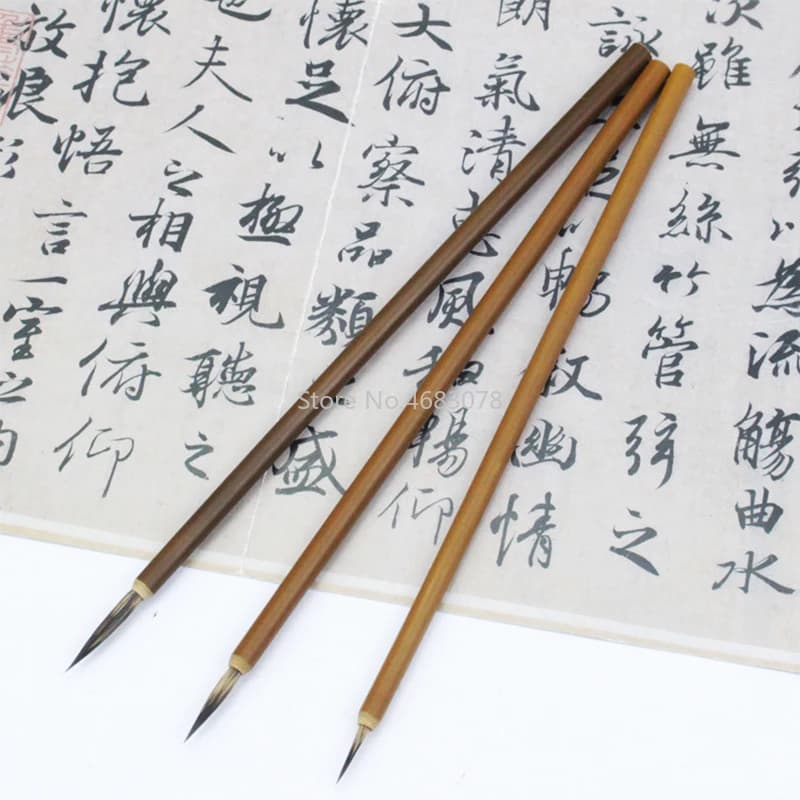 以為流觴曲水
次雖無絲竹管弦之
詠足暢敘幽情
朗氣清惠風和暢仰
大俯察品類盛
懷足以極視聽之
也夫人之相與俯仰
懷抱悟言一室之內
放浪形
Store No.4683078